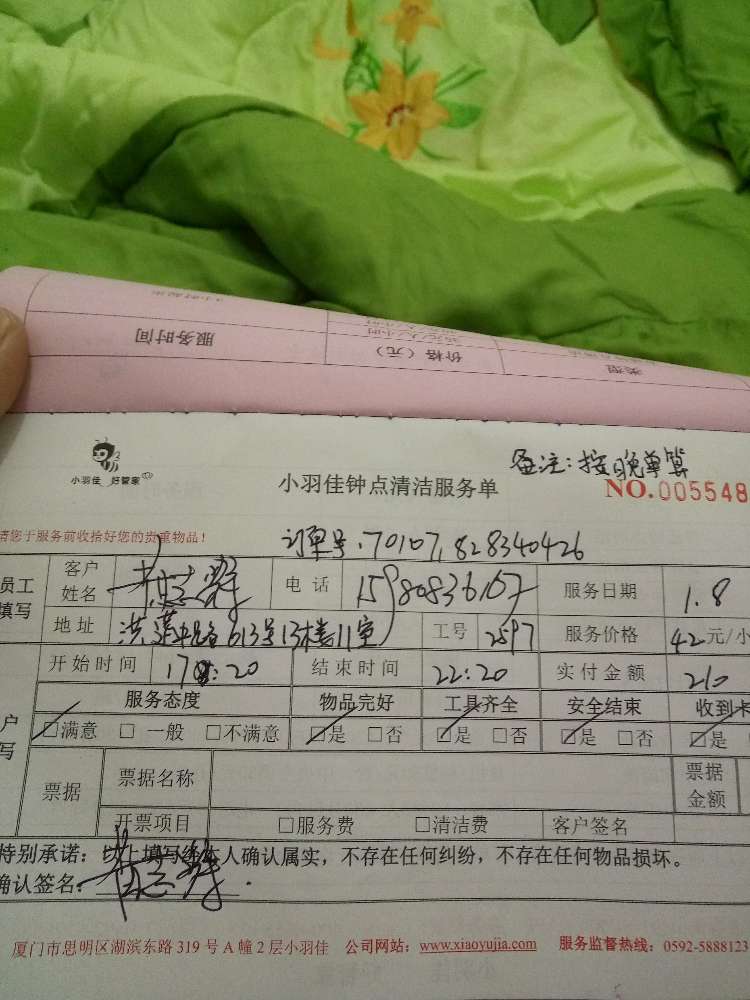 服务时间
价格（元）
类型
备注：按晚单算
小羽佳 好管家
小羽佳钟点清洁服务单
NO.005548
请您于服务前收拾好您的贵重物品！
订单号:70107,828340426
员工填写
客户姓名
电话 15980836107
服务日期 1.8
地址 613号13楼11室
工号 2597
服务价格 42元/小
开始时间 17:20
结束时间 22:20
实付金额 210
服务态度 物品完好 工具齐全 安全结束 收到卡
☑满意 □一般 □不满意 ☑是 □否 ☑是 □否 ☑是 □否 ☑是
户写
票据
票据名称
票据金额
开票项目 □服务费 □清洁费 客户签名
特别承诺：以上填写经本人确认属实，不存在任何纠纷，不存在任何物品损坏。
确认签名：
厦门市思明区湖滨东路319号A幢2层小羽佳 公司网站：www.xiaoyujia.com 服务监督热线：0592-5888123